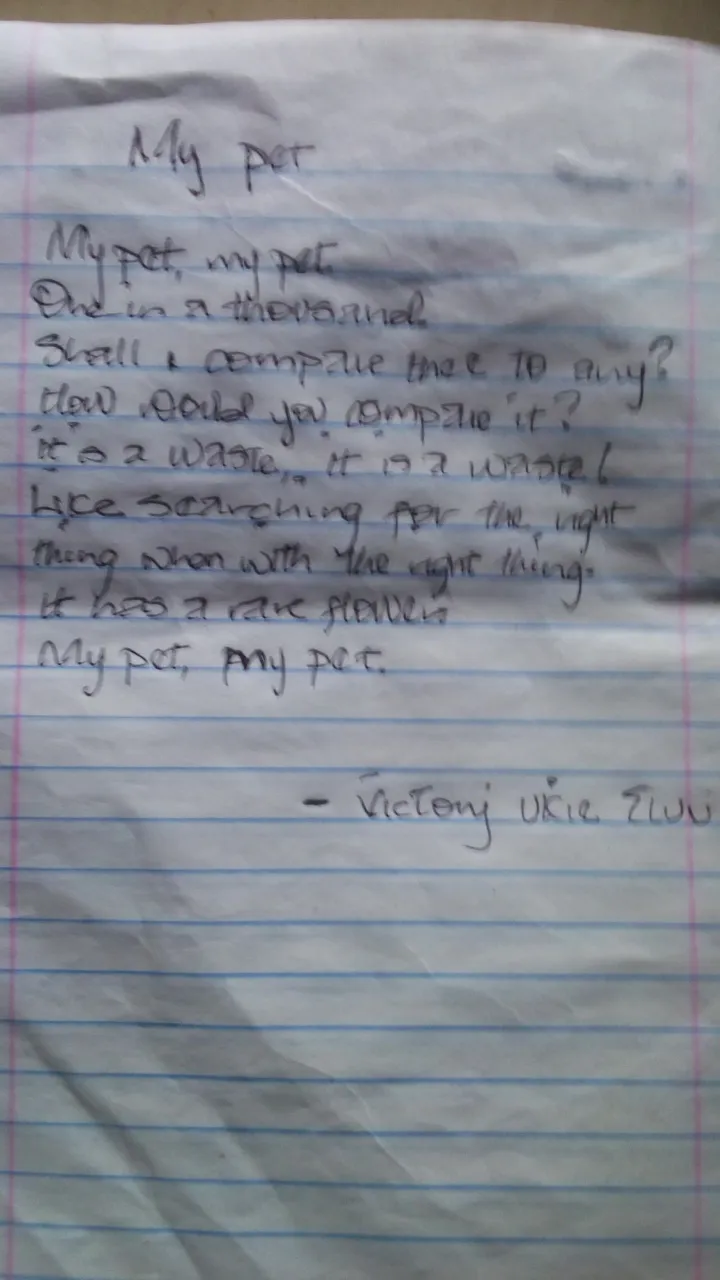 My pet
My pet, my pet.
One in a thousand.
Shall I compare thee to any?
How could you compare it?
it's a waste, it is a waste!
Like searching for the right
thing when with the right thing.
it has a rare flower
My pet, my pet.
- Victory Ukie